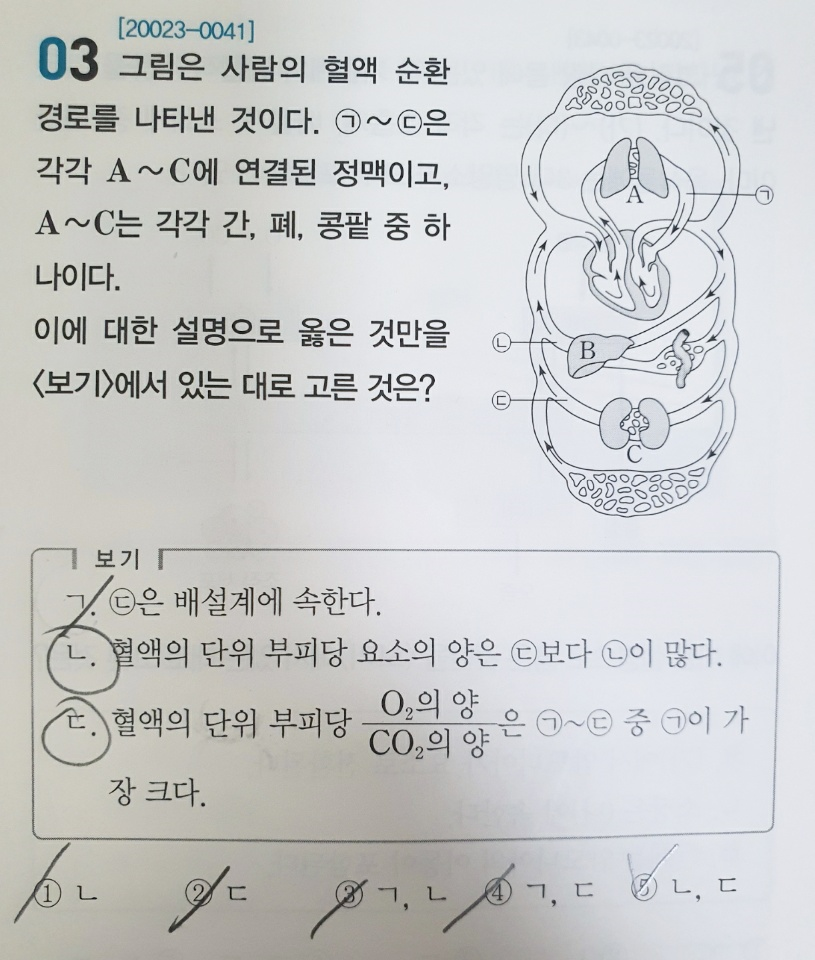 [20023-0041]
03 그림은 사람의 혈액 순환
경로를 나타낸 것이다. ㉠~㉢은
각각 A~C에 연결된 정맥이고,
A~C는 각각 간, 폐, 콩팥 중 하
나이다.
이에 대한 설명으로 옳은 것만을
<보기>에서 있는 대로 고른 것은?
A
㉠
㉡
B
㉢
C
보기
ㄱ. ㉢은 배설계에 속한다.
ㄴ. 혈액의 단위 부피당 요소의 양은 ㉢보다 ㉡이 많다.
ㄷ. 혈액의 단위 부피당 O₂의 양/CO₂의 양은 ㉠~㉢ 중 ㉠이 가
장 크다.
① ㄴ ② ㄷ ③ ㄱ, ㄴ ④ ㄱ, ㄷ ⑤ ㄴ, ㄷ